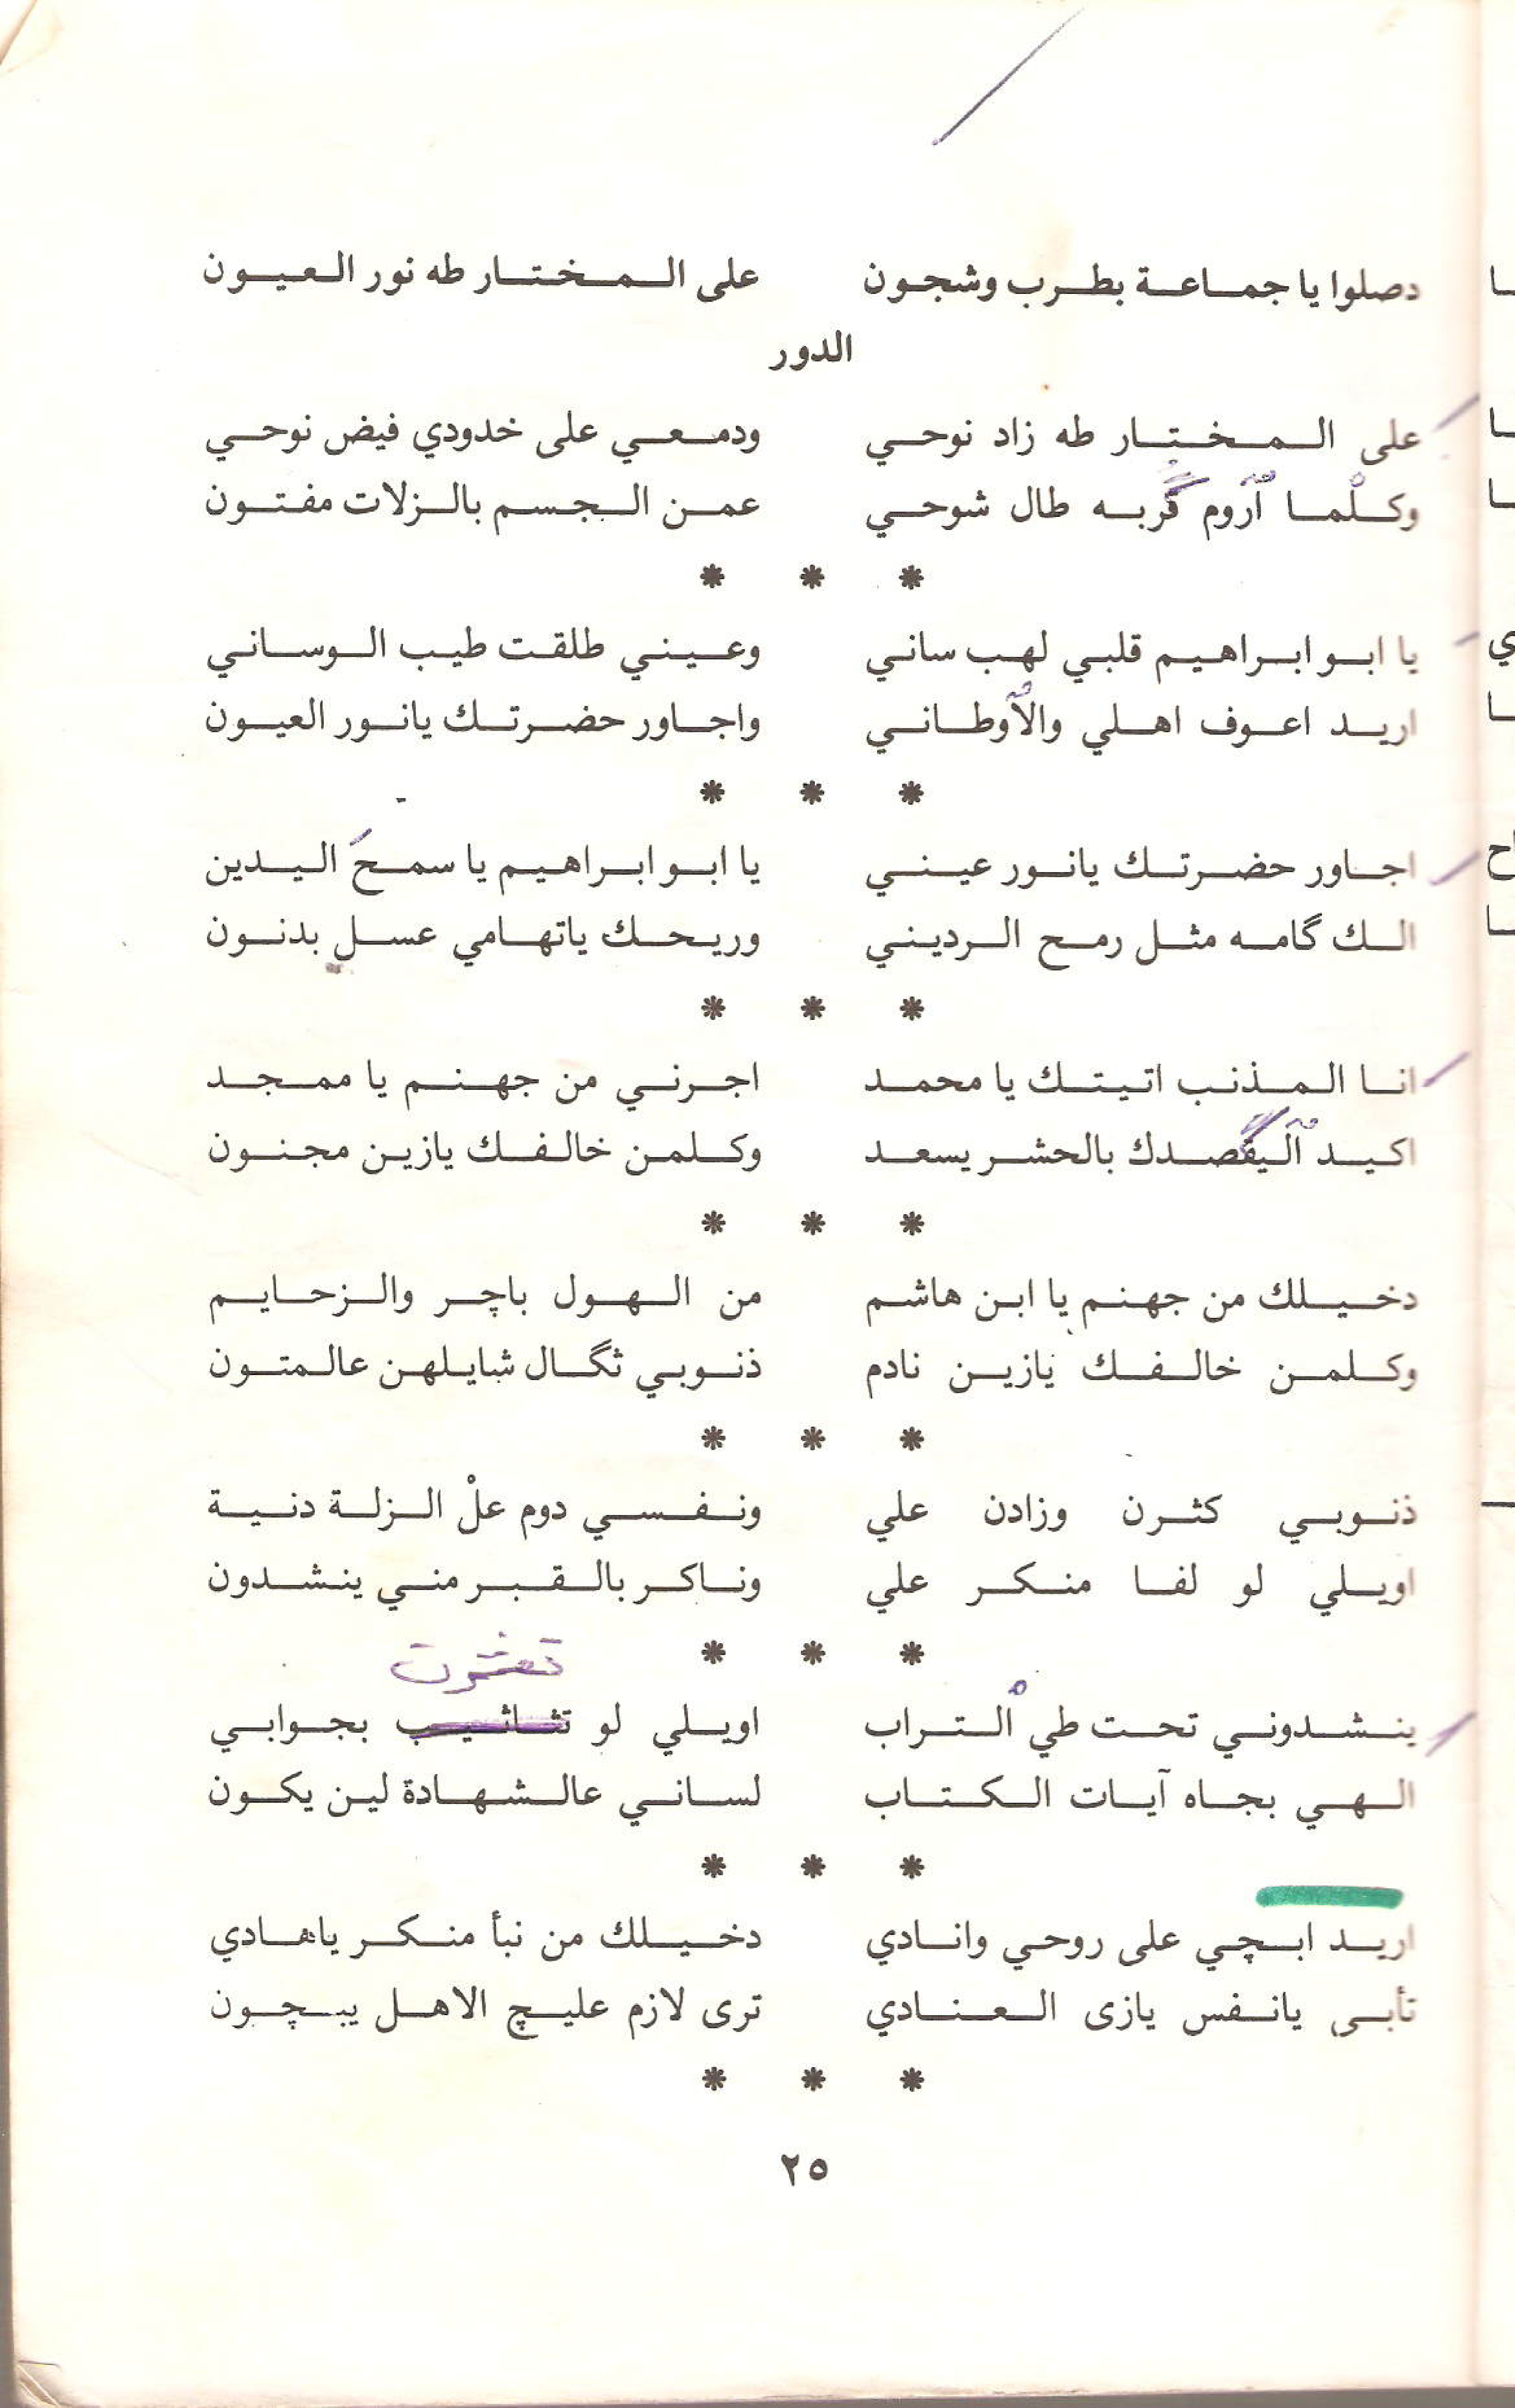 دصلوا يا جماعة بطرب وشجون على المختار طه نور العيون
الدور
على المختار طه زاد نوحي ودمعي على خدودي فيض نوحي
وكلْما آروم گربه طال شوحي عمن الجسم بالزلات مفتون
* * *
يا ابو ابراهيم قلبي لهب ساني وعيني طلقت طيب الوساني
اريد اعوف اهلي والأوطاني واجاور حضرتك يانور العيون
* * *
اجاور حضرتك يانور عيني يا ابو ابراهيم يا سمحَ اليدين
الك گامه مثل رمح الرديني وريحك ياتهامي عسل بدنون
* * *
انا المذنب اتيتك يا محمد اجرني من جهنم يا ممجد
اكيد آليگصدك بالحشر يسعد وكلمن خالفك يازين مجنون
* * *
دخيلك من جهنم يا ابن هاشم من الهول باچر والزحايم
وكلمن خالفك يازين نادم ذنوبي ثگال شايلهن عالمتون
* * *
ذنوبي كثرن وزادن علي ونفسي دوم علْ الزلة دنية
اويلي لو لفا منكر علي وناكر بالقبر مني ينشدون
* * *
ينشدوني تحت طي التراب اويلي لو تثائيب بجوابي
الهي بجاه آيات الكتاب لساني عالشهادة لين يكون
* * *
اريد ابچي على روحي وانادي دخيلك من نبأ منكر ياهادي
تأبى يانفس يازى العنادي ترى لازم عليچ الاهل يبچون
* * *
٢٥